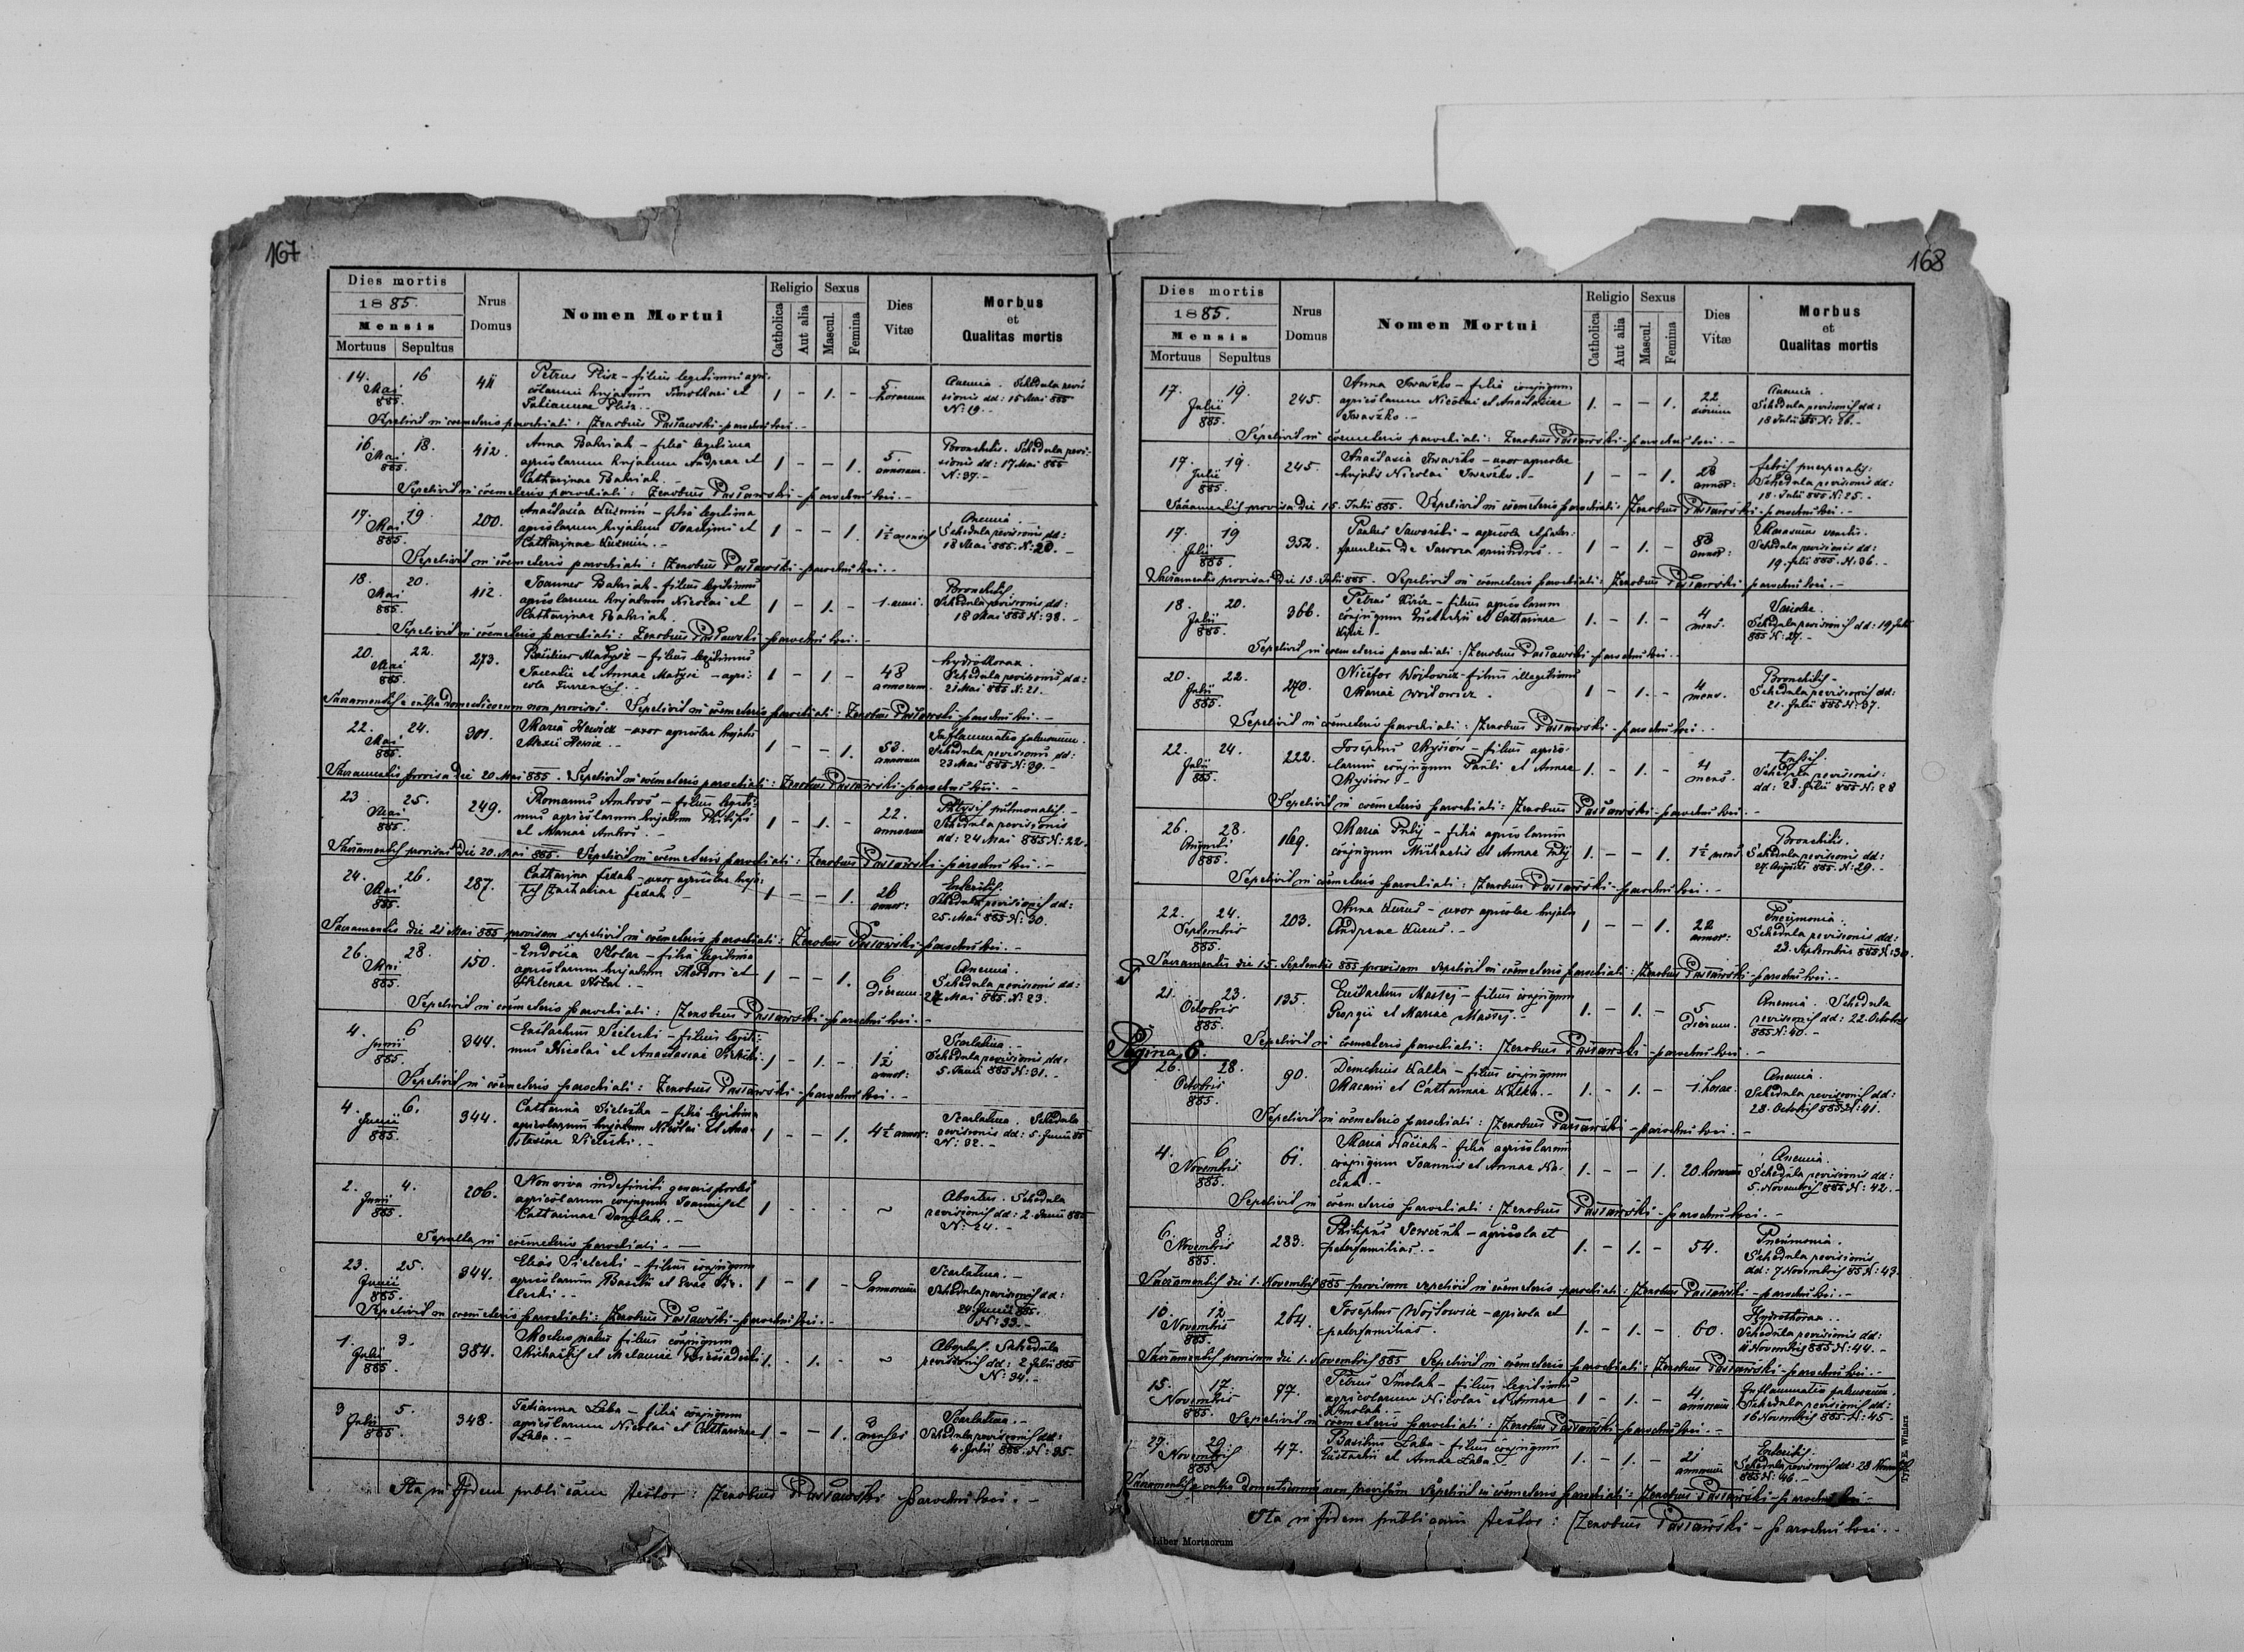 167
Dies mortis
1885.
Mensis
Mortuus Sepultus
Nrus Domus
Nomen Mortui
Religio
Catholica
Aut alia
Sexus
Mascul.
Femina
Dies Vitæ
Morbus et Qualitas mortis
14. 16 Petrus Plisz - filius legitimus agri-
Mai 411 colarum hujatum Timothaei et 1 - 1. - 5. horarum Anemia. Schedula revi
885. Tatiannae Plisz. - sionis dd: 15 Mai 885 N: 19. -
Sepelivit in coemeterio parochiali: Zenobius Pasławski - parochus loci. -
16. 18. Anna Bahriak - filia legitima
Mai 412. agricolarum hujatum Andreae et 1 - - 1. 5. annorum. Bronchitis. Schedula revi-
885. Catharinae Bahriak. - sionis dd: 17 Mai 885 N: 37. -
Sepelivit in coemeterio parochiali: Zenobius Pasławski - parochus loci. -
17. 19. Anastasia Kuzmin - filia legitima
Mai 200. agricolarum hujatum Joachimi et 1 - - 1. 1½ mensis Anemia. Schedula revisionis dd:
885. Catharinae Kuzmin. - 18 Mai 885 N: 20. -
Sepelivit in coemeterio parochiali: Zenobius Pasławski - parochus loci. -
18. 20. Joannes Bahriak - filius legitimus
Mai 412. agricolarum hujatum Nicolai et 1 - 1. - 1. anni. Bronchitis Schedula revisionis dd:
885. Catharinae Bahriak. 18 Mai 885 N: 38. -
Sepelivit in coemeterio parochiali: Zenobius Pasławski - parochus loci. -
20. 22. Basilius - filius legitimus
Mai 273. et Annae - agri- 1 - 1 - 48 annorum. Hydrothorax. Schedula revisionis dd:
885. cola Turrensis. - 21 Mai 885 N: 21. -
Sacramentis e culpa domesticorum non provisus. Sepelivit in coemeterio parochiali: Zenobius Pasławski - parochus loci. -
22. 24. Maria - uxor agricolae hujatis
Mai 301. Alexii 1 - - 1. 53. annorum Inflammatio pulmonum. Schedula revisionis dd:
885. 23 Mai 885 N: 39. -
Sacramentis provisa die 20 Mai 885. Sepelivit in coemeterio parochiali: Zenobius Pasławski - parochus loci. -
23 25. Romanus Ambros - filius legiti-
Mai 249. mus agricolarum hujatum Philippi 1 - 1. - 22. annorum Phtysis pulmonalis. - Schedula revisionis
885. et Mariae Ambros. - dd: 24 Mai 885 N: 22. -
Sacramentis provisus die 20. Mai 885. Sepelivit in coemeterio parochiali: Zenobius Pasławski - parochus loci. -
24. 26. Catharina Fedak - uxor agricolae huja-
Mai 287. tis Zachariae Fedak. - 1 - - 1. 26 annor: Enteritis. Schedula revisionis dd:
885. 25. Mai 885 N: 30.
Sacramentis die 21 Mai 885 provisam sepelivit in coemeterio parochiali: Zenobius Pasławski - parochus loci. -
26. 28. Eudocia - filia legitima
Mai 150. agricolarum hujatum Theodori et 1 - - 1. 6 Dierum. Anemia. Schedula revisionis dd:
885. Helenae 27 Mai 885. N: 23.
Sepelivit in coemeterio parochiali: Zenobius Pasławski - parochus loci. -
4. 6 Eustachius Sielecki - filius legiti-
Junii 344. mus Nicolai et Anastasiae 1 - 1. - 1½ annor: Scarlatina. - Schedula revisionis dd:
885. 5. Junii 885 N: 31. -
Sepelivit in coemeterio parochiali: Zenobius Pasławski - parochus loci. -
4. 6. Catharina Sielecka - filia legitima
Junii 344. agricolarum hujatum Nicolai et Ana- 1 - - 1. 4½ annor: Scarlatina. Schedula
885. stasiae Sielecki. - revisionis dd: 5. Junii 885 N: 32. -
2. 4. Non viva indefiniti generis proles
Junii 206. agricolarum conjugum Joannis et 1 - - - ~ Abortus. Schedula
885. Catharinae Danylak. - revisionis dd: 2. Junii 885 N: 24. -
Sepulta in coemeterio parochiali. -
23. 25. Elias Sielecki - filius conjugum
Junii 344. agricolarum Basilii et Evae Sie- 1 - 1 - 9 annorum Scarlatina. - Schedula revisionis dd:
885. lecki. - 24. Junii 885. N: 33. -
Sepelivit in coemeterio parochiali: Zenobius Pasławski - parochus loci. -
1. 3. natus filius conjugum
Julii 384. Michaelis et Melaniae 1. - 1. - ~ Abortus. Schedula
885. revisionis dd: 2 Julii 885 N: 34. -
3 5. Tatianna Laba - filia conjugum
Julii 348. agricolarum Nicolai et Catharinae 1 - - 1. 3 menses Scarlatina. - Schedula revisionis dd:
885. Laba. - 4. Julii 885. N: 35.
Ita in fidem publicam testor: Zenobius Pasławski parochus loci. -
168
Dies mortis
1885.
Mensis
Mortuus Sepultus
Nrus Domus
Nomen Mortui
Religio
Catholica
Aut alia
Sexus
Mascul.
Femina
Dies Vitæ
Morbus et Qualitas mortis
17. 19. Anna Iwaszko - filia conjugum
Julii 245. agricolarum Nicolai et Anastasiae 1. - - 1. 22 dierum Anemia. Schedula revisionis dd:
885. Iwaszko. - 18 Julii 885 N: 26. -
Sepelivit in coemeterio parochiali: Zenobius Pasławski - parochus loci. -
17. 19. Anastasia Iwaszko - uxor agricolae
Julii 245. hujatis Nicolai Iwaszko. - 1 - - 1. 28 annor: Febris puerperalis. Schedula revisionis dd:
885. 18. Julii 885 N: 25. -
Sacramentis provisa die 15. Julii 885. Sepelivit in coemeterio parochiali: Zenobius Pasławski - parochus loci. -
17. 19 Paulus Jaworski - agricola et pater-
Julii 352. familias de Jawora oriundus. - 1 - 1. - 88 annor: Marasmus Schedula revisionis dd:
885. 19. Julii 885. N: 36. -
Sacramentis provisus die 15. Julii 885. Sepelivit in coemeterio parochiali: Zenobius Pasławski parochus loci. -
18. 20. Petrus - filius agricolarum
Julii 366. conjugum Eustachii et Catharinae 1. - 1. - 4 mens. Variolae. Schedula revisionis dd: 19 Julii
885. 885 N: 27. -
Sepelivit in coemeterio parochiali: Zenobius Pasławski - parochus loci. -
20. 22. Nicefor Wojtowicz - filius illegitimus
Julii 270. Mariae Wojtowicz. 1 - 1. - 4 mens. Bronchitis - Schedula revisionis dd:
885. 21. Julii 885 N: 37.
Sepelivit in coemeterio parochiali: Zenobius Pasławski - parochus loci. -
22. 24. Josephus Rysiow - filius agrico-
Julii 222. larum conjugum Pauli et Annae 1. - 1. - 4 mens. Tussis. Schedula revisionis
885. Rysiow - dd: 23. Julii 885 N: 28
Sepelivit in coemeterio parochiali: Zenobius Pasławski - parochus loci. -
26. 28. Maria - filia agricolarum
Augusti 169. conjugum Michaelis et Annae 1. - - 1. 1½ mens Bronchitis. Schedula revisionis dd:
885. 27. Augusti 885. N: 29. -
Sepelivit in coemeterio parochiali: Zenobius Pasławski - parochus loci. -
22. 24. Anna Kurus - uxor agricolae hujatis
Septembris 203. Andreae Kurus. - 1 - - 1. 22 annor: Pneumonia. Schedula revisionis dd:
885. 23. Septembris 885 N: 30.
Sacramentis die 15. Septembris 885 provisam sepelivit in coemeterio parochiali: Zenobius Pasławski - parochus loci. -
21. 23. Eustachius Maciej - filius conjugum
Octobris 135. Georgii et Mariae Maciej. - 1. - 1. - 5 Dierum. Anemia. Schedula
885. revisionis dd: 22. Octobris 885 N: 40. -
Sepelivit in coemeterio parochiali: Zenobius Pasławski - parochus loci. -
Pagina 6.
26. 28. Demetrius Kalka - filius conjugum
Octobris 90. Macarii et Catharinae Kalka. - 1. - 1. - 1. horae. Anemia. Schedula revisionis dd:
885. 28. Octobris 885 N: 41.
Sepelivit in coemeterio parochiali: Zenobius Pasławski - parochus loci. -
4. 6 Maria - filia agricolarum
Novembris 61. conjugum Joannis et Annae 1. - - 1. 20. horarum Anemia. Schedula revisionis dd:
885. 5. Novembris 885 N: 42. -
Sepelivit in coemeterio parochiali: Zenobius Pasławski - parochus loci. -
6. 8. Philippus - agricola et
Novembris 283. paterfamilias. - 1. - 1. - 54. Pneumonia. Schedula revisionis
885. dd: 7 Novembris 85 N: 43.
Sacramentis die 1. Novembris 885 provisum sepelivit in coemeterio parochiali: Zenobius Pasławski - parochus loci. -
10. 12 Josephus Wojtowicz - agricola et
Novembris 264. paterfamilias. 1. - 1. - 60. Hydrothorax. Schedula revisionis dd:
885. 11 Novembris 885 N: 44. -
Sacramentis provisum die 1. Novembris 885 Sepelivit in coemeterio parochiali: Zenobius Pasławski - parochus loci. -
15. 17. Petrus Smolak - filius legitimus
Novembris 97. agricolarum Nicolai et Annae 1 - 1. - 4. annorum Inflammatio pulmonum. Schedula revisionis dd:
885. Smolak. - 16 Novembris 885. N: 45 -
Sepelivit in coemeterio parochiali: Zenobius Pasławski - parochus loci. -
27. 29. Basilius Laba - filius conjugum
Novembris 47. Eustachii et Annae Laba. 1. - 1. - 21 annorum Enteritis. Schedula revisionis dd: 28
885. 885 N: 46. -
Sacramentis e culpa domesticorum non provisum Sepelivit in coemeterio parochiali: Zenobius Pasławski - parochus loci -
Ita in fidem publicam testor: Zenobius Pasławski - parochus loci. -
Liber Mortuorum
Typ. E. Winiarz